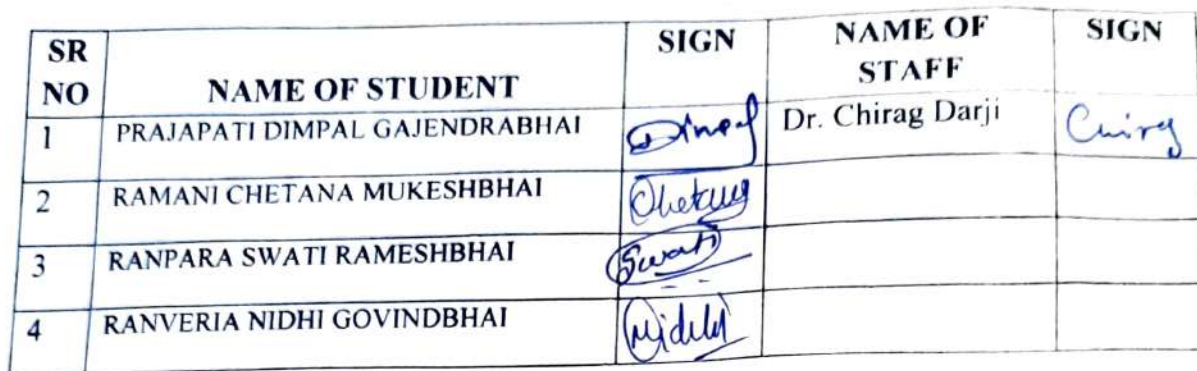 SR NO NAME OF STUDENT SIGN NAME OF STAFF SIGN
1 PRAJAPATI DIMPAL GAJENDRABHAI Dimpal Dr. Chirag Darji Chirag
2 RAMANI CHETANA MUKESHBHAI Chetana
3 RANPARA SWATI RAMESHBHAI Swati
4 RANVERIA NIDHI GOVINDBHAI Nidhi